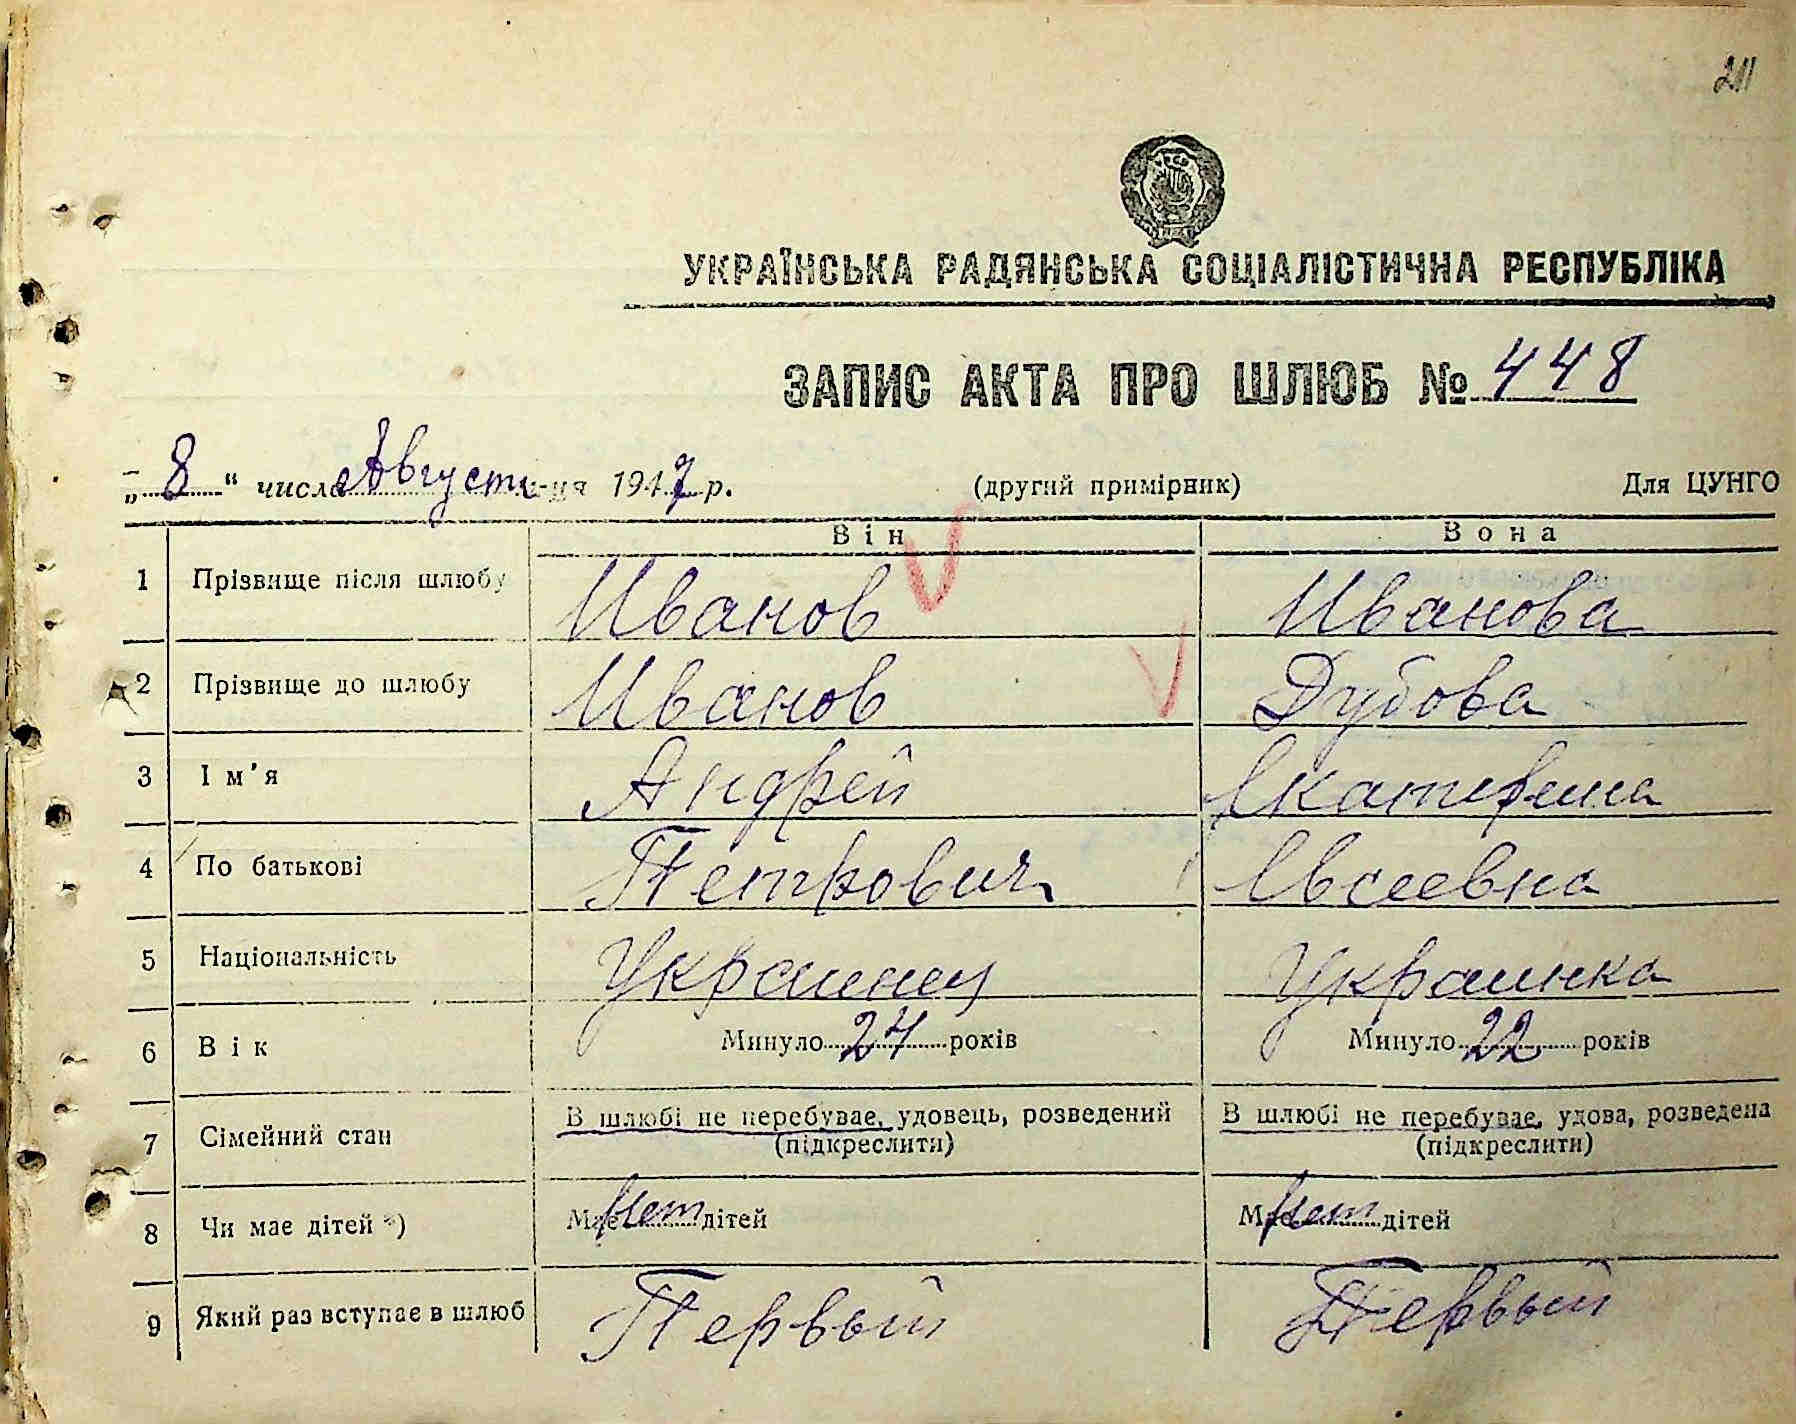 211
УКРАЇНСЬКА РАДЯНСЬКА СОЦІАЛІСТИЧНА РЕСПУБЛІКА
ЗАПИС АКТА ПРО ШЛЮБ № 448
„8“ числа Августа м-ця 1947 р. (другий примірник) Для ЦУНГО
Він Вона
1 Прізвище після шлюбу Иванов Иванова
2 Прізвище до шлюбу Иванов Дубова
3 Ім'я Андрей Екатерина
4 По батькові Петрович Евсеевна
5 Національність Украинец Украинка
6 Вік Минуло 24 років Минуло 22 років
7 Сімейний стан В шлюбі не перебуває, удовець, розведений В шлюбі не перебуває, удова, розведена
(підкреслити) (підкреслити)
8 Чи має дітей *) Має Нет дітей Має Нет дітей
9 Який раз вступає в шлюб Первый Первый